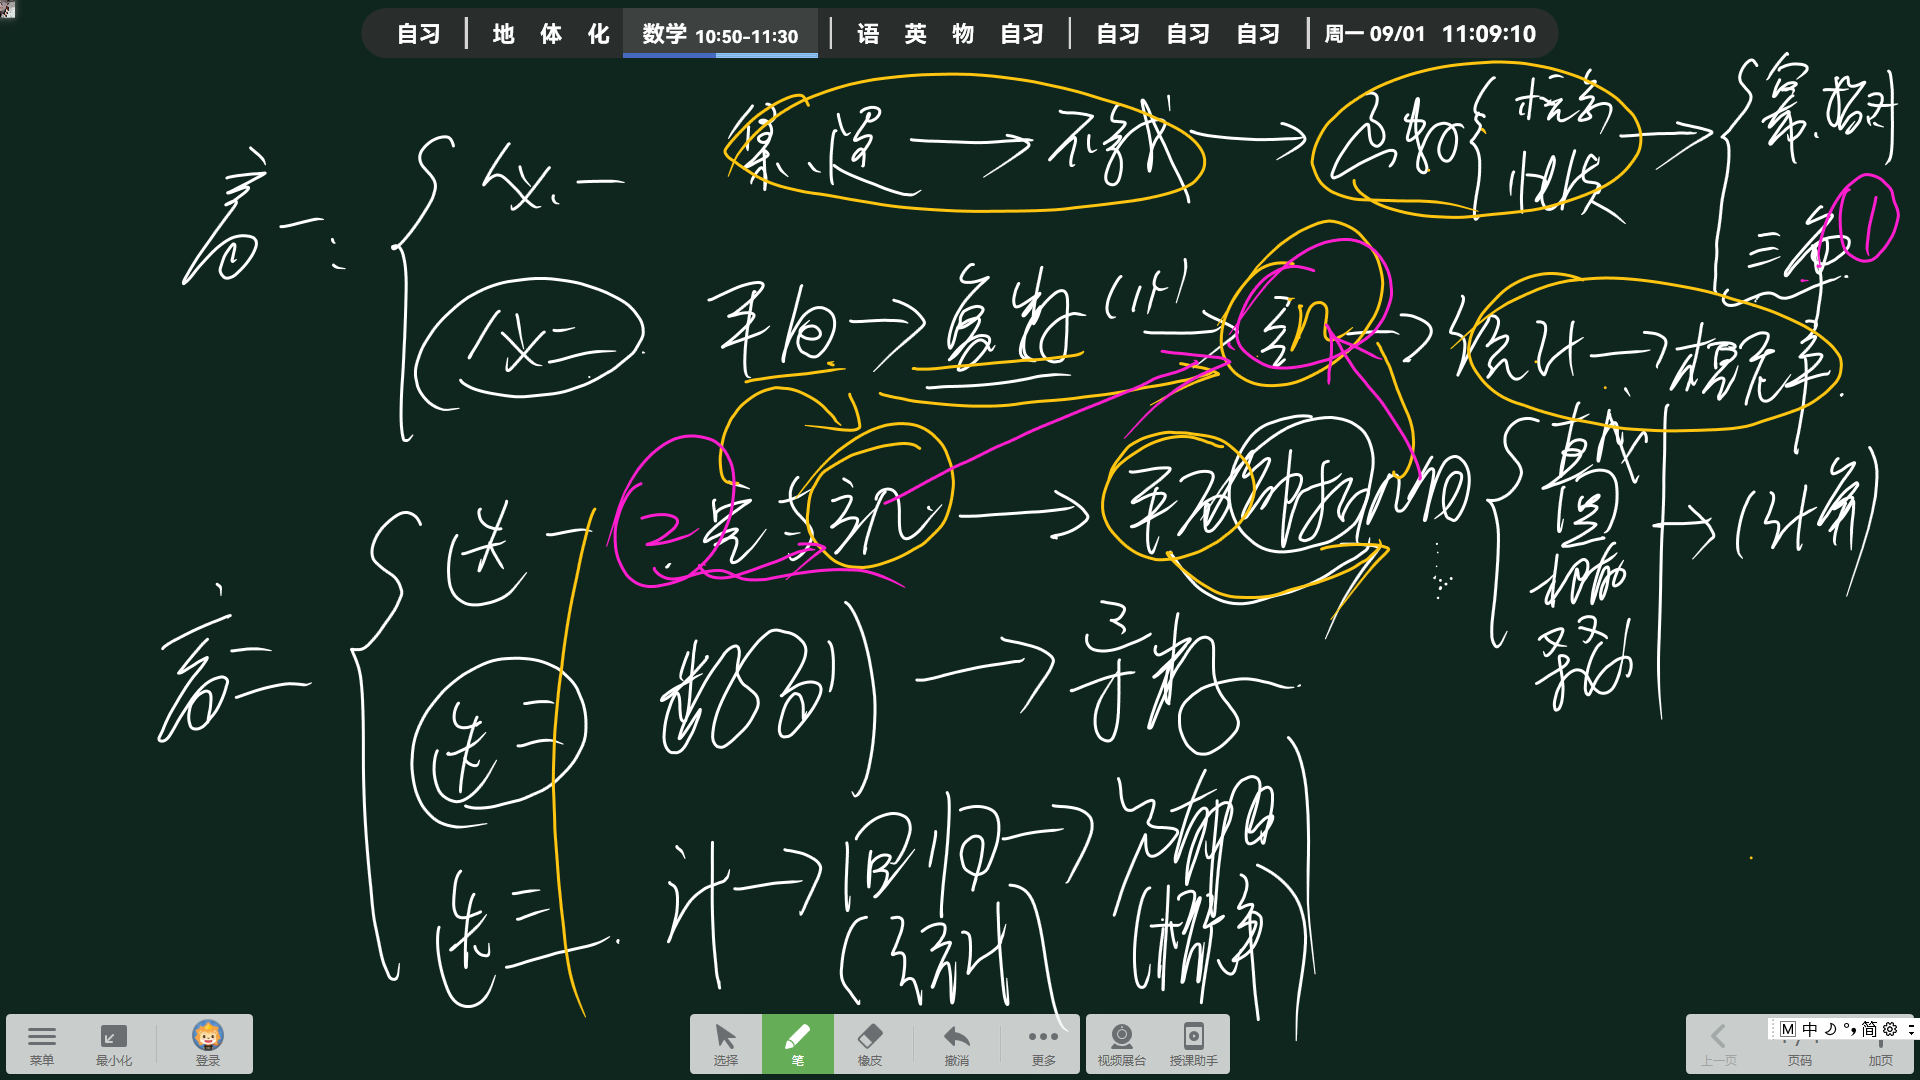 自习 | 地 体 化 数学 10:50-11:30 | 语 英 物 自习 | 自习 自习 自习 | 周一 09/01 11:09:10
高一: 必一 集、逻 → 不等式 → 函数 概念 性质 → 幂.指对 三角 ①
必二 平向 → 复数 (计) → 立几 → 统计 → 概率
高二 选一 2 空与立几 → 平面解析几何 直线 圆 → (计算)
选二 数列 → 导数
选三 计 → 回归 (统计) → (概率)
菜单 最小化 登录
选择 笔 橡皮 撤消 更多
视频展台 授课助手
M 中 简
上一页 页码 加页